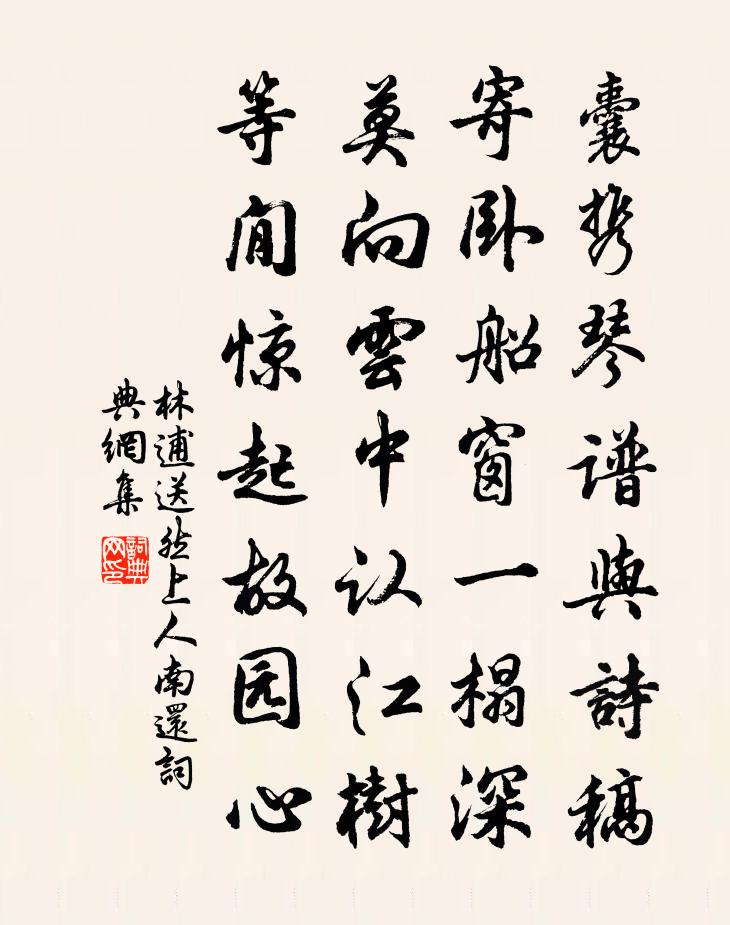 囊携琴谱與詩稿
寄卧船窗一榻深
莫向雲中认江樹
等閒惊起故园心
林逋送然上人南還詞
典網集
詞典
网印